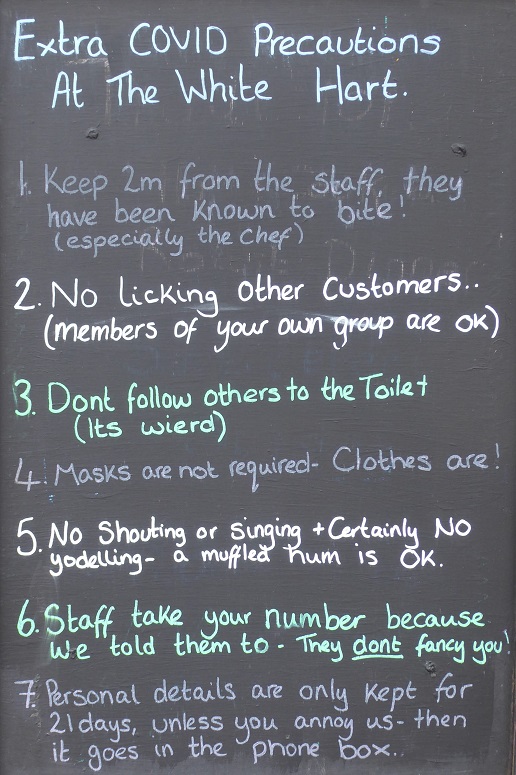 Extra COVID Precautions
At The White Hart.
1. Keep 2m from the staff, they
have been known to bite!
(especially the chef)
2. No licking other customers..
(members of your own group are ok)
3. Dont follow others to the Toilet
(Its wierd)
4. Masks are not required- Clothes are!
5. No Shouting or Singing + Certainly NO
yodelling- a muffled hum is OK.
6. Staff take your number because
we told them to - They dont fancy you!
7. Personal details are only kept for
21 days, unless you annoy us- then
it goes in the phone box..